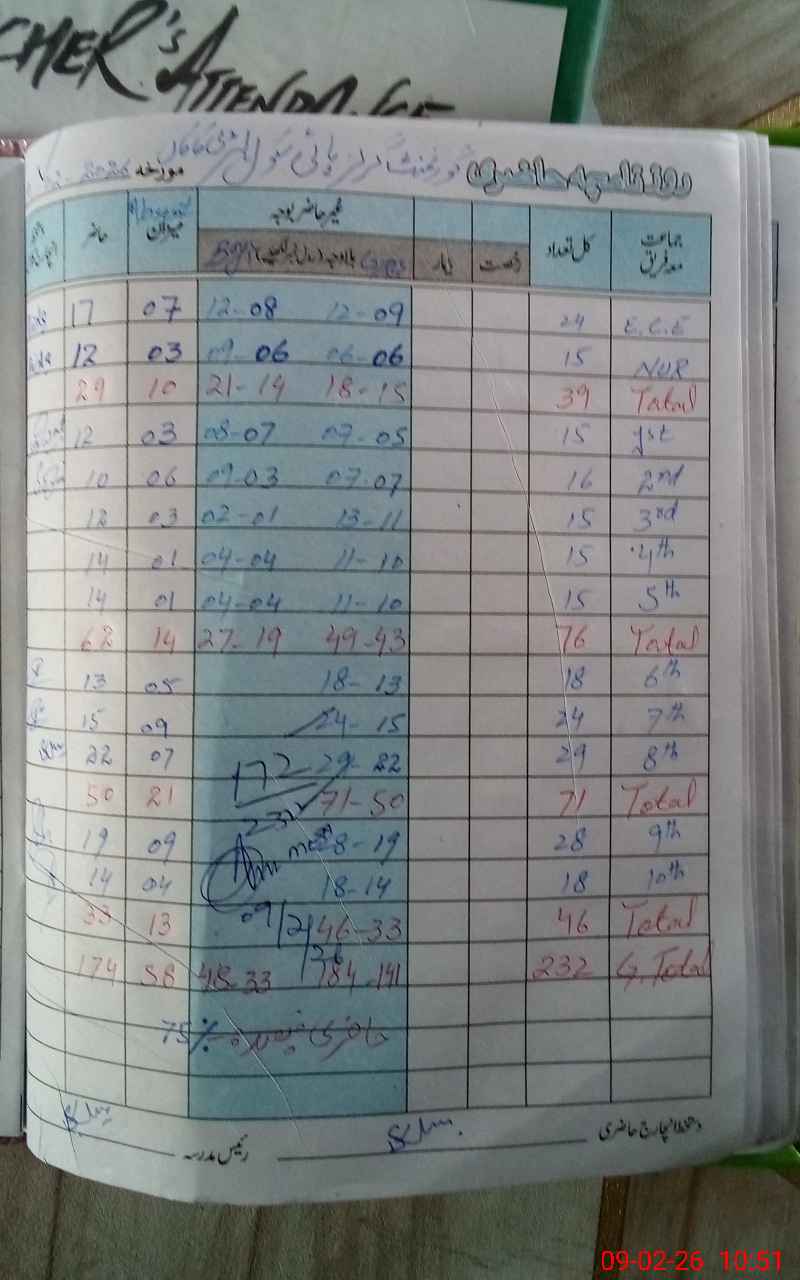 CHER's ATTENDANCE
روزنامچہ حاضری گورنمنٹ گرلز ہائی سکول مورخہ 2026
جماعت معہ فریق کل تعداد رخصت بیمار غیر حاضر بوجہ میزان حاضر
Boys بلاوجہ Girls
17 07 12-08 12-09 24 E.C.E
12 03 09-06 06-06 15 NUR
29 10 21-14 18-15 39 Total
12 03 08-07 07-05 15 1st
10 06 09-03 07-07 16 2nd
12 03 02-01 13-11 15 3rd
14 01 04-04 11-10 15 4th
14 01 04-04 11-10 15 5th
62 14 27-19 49-43 76 Total
13 05 18-13 18 6th
15 09 24-15 24 7th
22 07 29-22 29 8th
172
50 21 71-50 71 Total
232
19 09 28-19 28 9th
14 04 18-14 18 10th
09/2/26
33 13 46-33 46 Total
174 58 48-33 184-141 232 G.Total
75% حاضری فیصد
دستخط انچارج حاضری رئیس مدرسہ
09-02-26 10:51